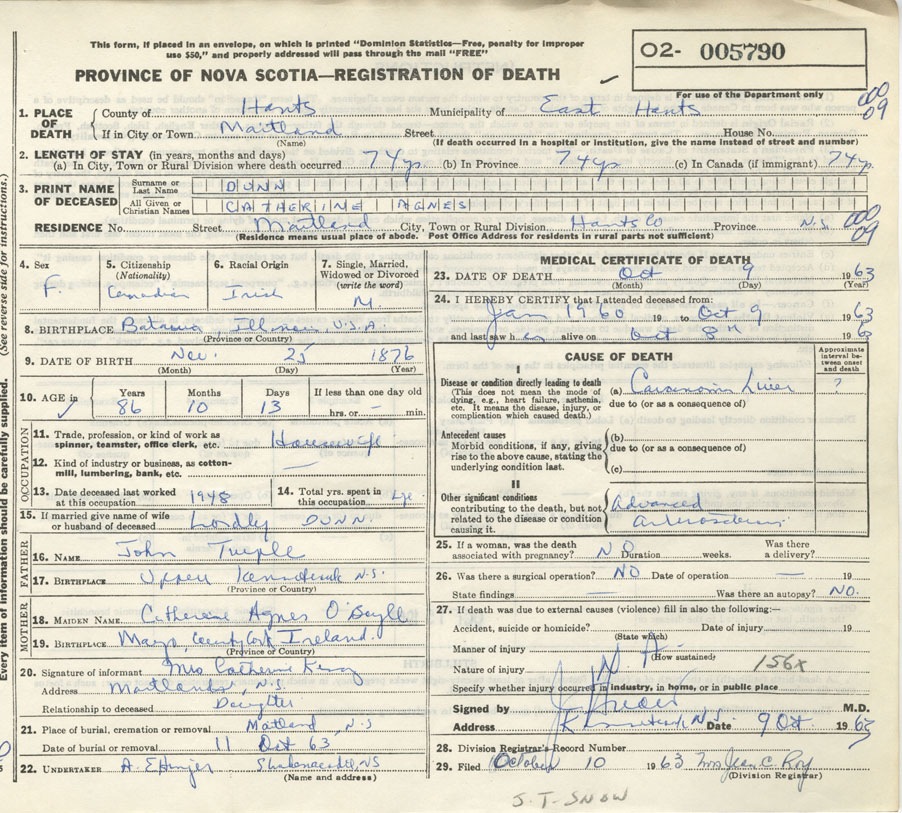 This form, if placed in an envelope, on which is printed "Dominion Statistics—Free, penalty for improper
use $50," and properly addressed will pass through the mail "FREE"
O2- 005790
PROVINCE OF NOVA SCOTIA—REGISTRATION OF DEATH
For use of the Department only
000
09
1. PLACE OF DEATH County of Hants Municipality of East Hants
If in City or Town Maitland Street House No.
(Name) (If death occurred in a hospital or institution, give the name instead of street and number)
2. LENGTH OF STAY (in years, months and days)
(a) In City, Town or Rural Division where death occurred 74 yr. (b) In Province 74 yr. (c) In Canada (if immigrant) 74 yr.
3. PRINT NAME OF DECEASED Surname or Last Name DUNN
All Given or Christian Names CATHERINE AGNES
RESIDENCE No. Street Maitland City, Town or Rural Division Hants Co Province N.S.
(Residence means usual place of abode. Post Office Address for residents in rural parts not sufficient)
000
09
4. Sex F.
5. Citizenship (Nationality) Canadian
6. Racial Origin Irish
7. Single, Married, Widowed or Divorced (write the word) M.
8. BIRTHPLACE Batavia, Illinois, U.S.A.
(Province or Country)
9. DATE OF BIRTH Nov. 25 1876
(Month) (Day) (Year)
10. AGE in Years 86 Months 10 Days 13 If less than one day old hrs. or — min.
OCCUPATION
11. Trade, profession, or kind of work as spinner, teamster, office clerk, etc. Housewife
12. Kind of industry or business, as cotton-mill, lumbering, bank, etc. —
13. Date deceased last worked at this occupation 1948
14. Total yrs. spent in this occupation Life
15. If married give name of wife or husband of deceased Lordly DUNN.
FATHER
16. NAME John
17. BIRTHPLACE Upper Kennetcook N.S.
(Province or Country)
MOTHER
18. MAIDEN NAME Catherine Agnes O'Boyle
19. BIRTHPLACE Mayo, County Cork Ireland.
(Province or Country)
20. Signature of informant Mrs Catherine
Address Maitland, N.S.
Relationship to deceased Daughter
21. Place of burial, cremation or removal Maitland, N.S
Date of burial or removal 11 Oct 63
22. UNDERTAKER A. Ettinger Shubenacadie, NS
(Name and address)
MEDICAL CERTIFICATE OF DEATH
23. DATE OF DEATH Oct 9 1963
(Month) (Day)
24. I HEREBY CERTIFY that I attended deceased from:
Jan 1960 19 to Oct 9 1963
and last saw h er alive on Oct 8th 1963
CAUSE OF DEATH
Approximate interval between onset and death
I
Disease or condition directly leading to death
(This does not mean the mode of dying, e.g., heart failure, asthenia, etc. It means the disease, injury, or complication which caused death.)
(a) Carcinoma Liver ?
due to (or as a consequence of)
Antecedent causes
Morbid conditions, if any, giving rise to the above cause, stating the underlying condition last.
(b)
due to (or as a consequence of)
(c)
II
Other significant conditions contributing to the death, but not related to the disease or condition causing it.
Advanced
25. If a woman, was the death associated with pregnancy? NO Duration weeks. Was there a delivery?
26. Was there a surgical operation? NO Date of operation — 19
State findings — Was there an autopsy? NO.
27. If death was due to external causes (violence) fill in also the following:—
Accident, suicide or homicide? Date of injury 19
(State which)
Manner of injury N A
(How sustained)
Nature of injury 156x
Specify whether injury occurred in industry, in home, or in public place
Signed by M.D.
Address Kennetcook, N.S. Date 9 Oct. 1963
28. Division Registrar's Record Number
29. Filed October 10 1963 Mrs Jean C. Roy
(Division Registrar)
J. T. SNOW
Every item of information should be carefully supplied. (See reverse side for instructions.)